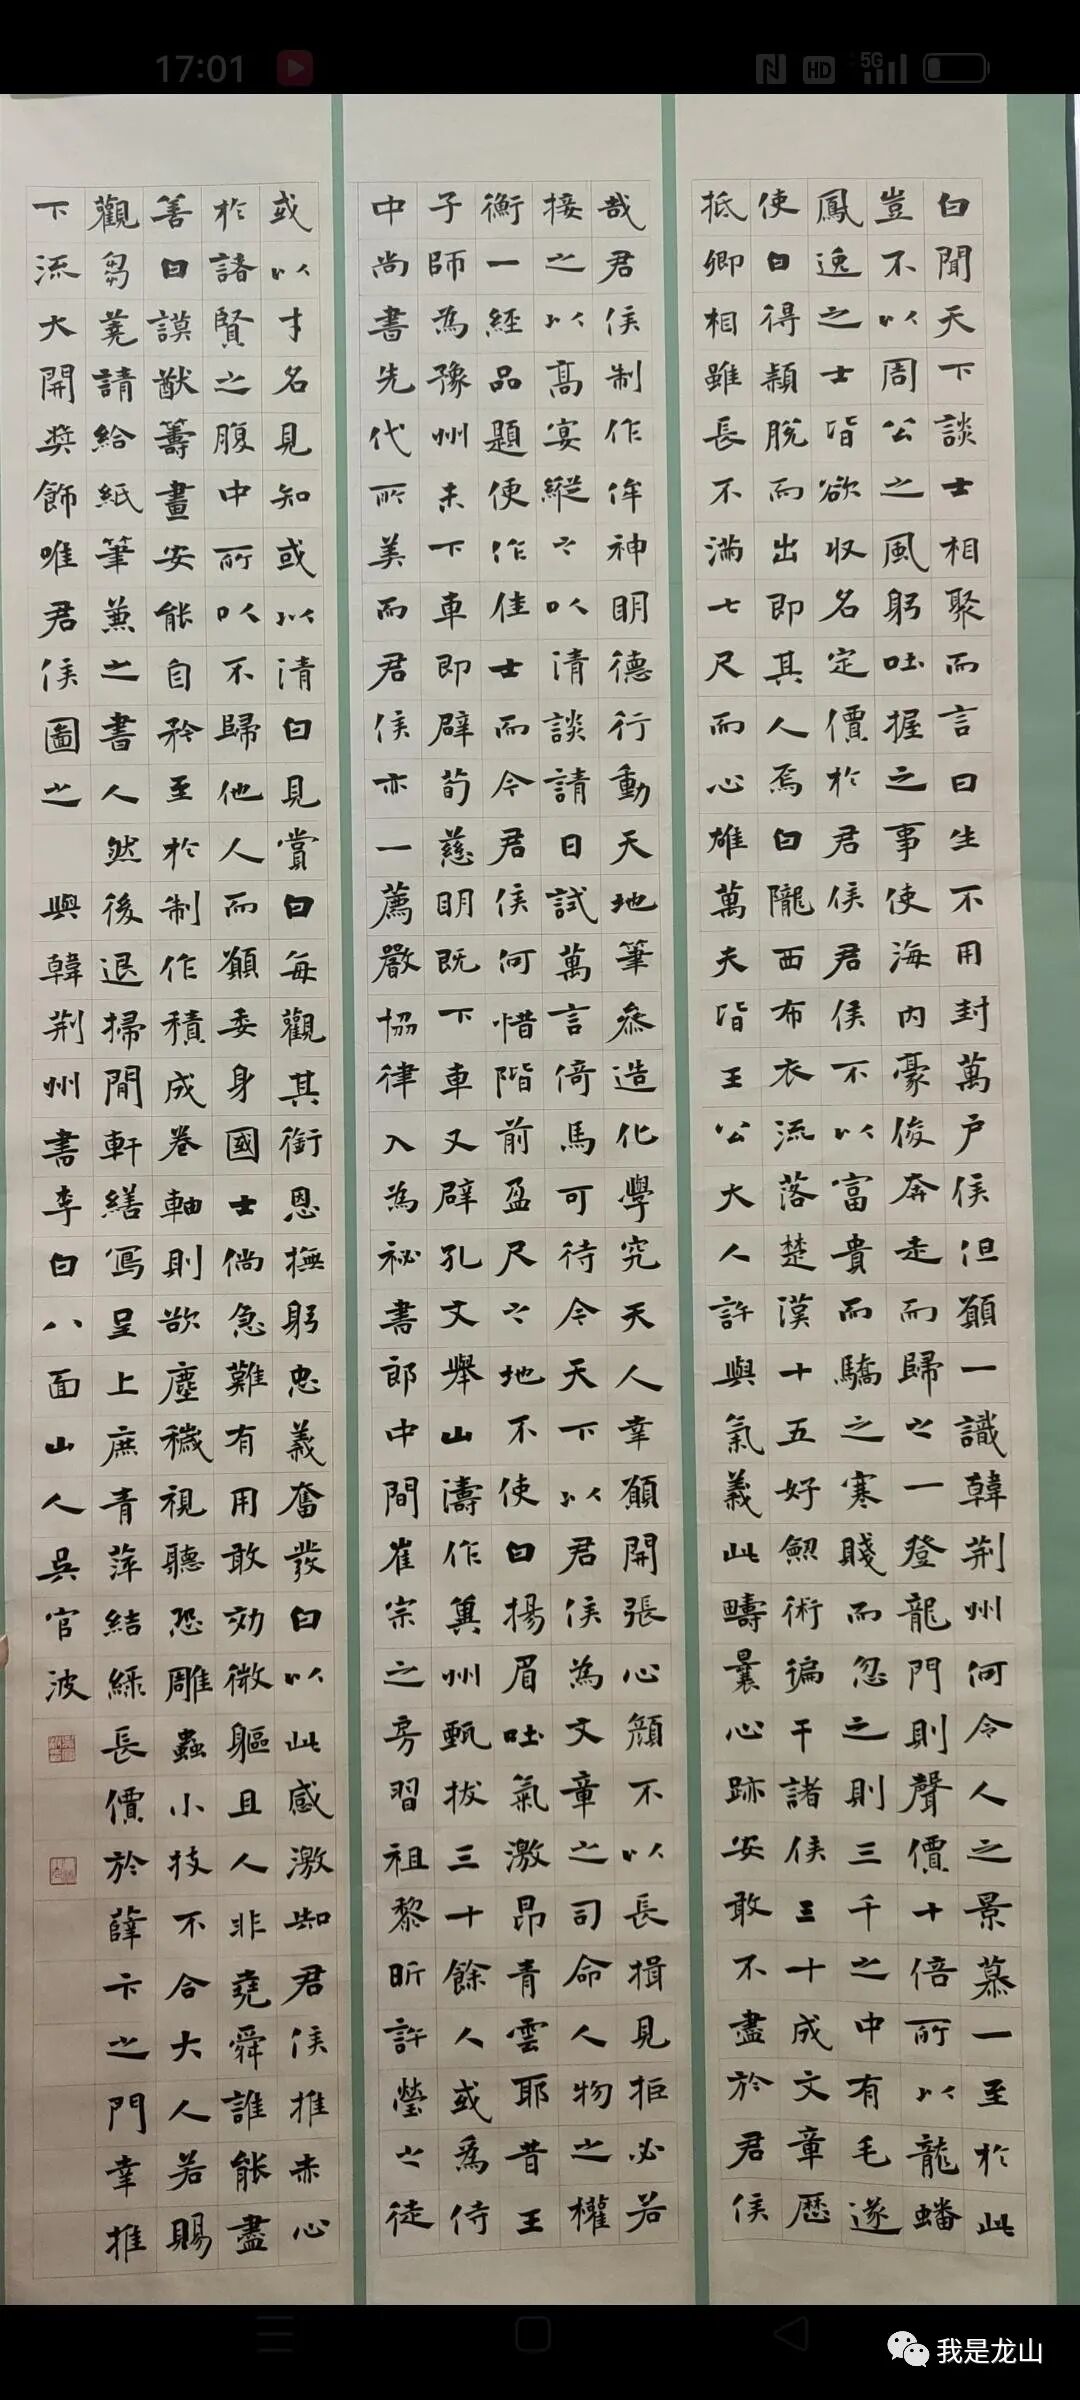 17:01 HD 5G
白聞天下談士相聚而言曰生不用封萬户侯但願一識韓荆州何令人之景慕一至於此
豈不以周公之風躬吐握之事使海内豪俊奔走而歸之一登龍門則聲價十倍所以龍蟠
鳳逸之士皆欲収名定價於君侯君侯不以富貴而驕之寒賤而忽之則三千之中有毛遂
使白得穎脫而出即其人焉白隴西布衣流落楚漢十五好劒術徧干諸侯三十成文章歷
抵卿相雖長不滿七尺而心雄萬夫皆王公大人許與氣義此疇曩心跡安敢不盡於君侯
哉君侯制作侔神明德行動天地筆叅造化學究天人幸願開張心顔不以長揖見拒必若
接之以高宴縱之以清談請日試萬言倚馬可待今天下以君侯為文章之司命人物之權
衡一經品題便作佳士而今君侯何惜階前盈尺之地不使白揚眉吐氣激昂青雲耶昔王
子師為豫州未下車即辟荀慈明既下車又辟孔文舉山濤作冀州甄拔三十餘人或為侍
中尚書先代所美而君侯亦一薦嚴協律入為祕書郎中間崔宗之房習祖黎昕許瑩之徒
或以才名見知或以清白見賞白每觀其銜恩撫躬忠義奮發白以此感激知君侯推赤心
於諸賢之腹中所以不歸他人而願委身國士倘急難有用敢効微軀且人非堯舜誰能盡
善白謨猷籌畫安能自矜至於制作積成卷軸則欲塵穢視聽恐雕蟲小技不合大人若賜
觀芻蕘請給紙筆兼之書人然後退掃閒軒繕寫呈上庶青萍結緑長價於薛卞之門幸推
下流大開奬飾唯君侯圖之 與韓荆州書李白八面山人吳官波
我是龙山